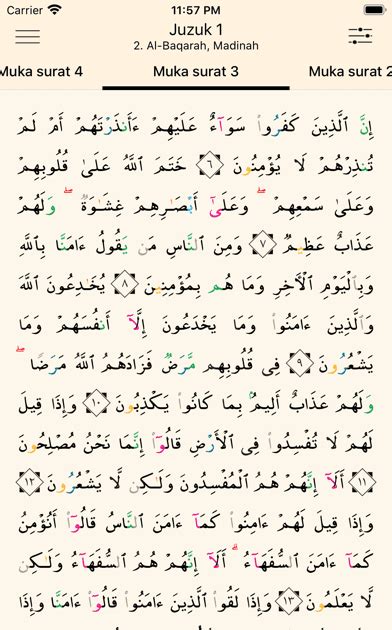 Carrier 11:57 PM
Juzuk 1
2. Al-Baqarah, Madinah
Muka surat 4 Muka surat 3 Muka surat 2
إِنَّ ٱلَّذِينَ كَفَرُوا۟ سَوَآءٌ عَلَيْهِمْ ءَأَنذَرْتَهُمْ أَمْ لَمْ
تُنذِرْهُمْ لَا يُؤْمِنُونَ ٦ خَتَمَ ٱللَّهُ عَلَىٰ قُلُوبِهِمْ
وَعَلَىٰ سَمْعِهِمْ ۖ وَعَلَىٰٓ أَبْصَـٰرِهِمْ غِشَـٰوَةٌ ۖ وَلَهُمْ
عَذَابٌ عَظِيمٌ ٧ وَمِنَ ٱلنَّاسِ مَن يَقُولُ ءَامَنَّا بِٱللَّهِ
وَبِٱلْيَوْمِ ٱلْـَٔاخِرِ وَمَا هُم بِمُؤْمِنِينَ ٨ يُخَـٰدِعُونَ ٱللَّهَ
وَٱلَّذِينَ ءَامَنُوا۟ وَمَا يَخْدَعُونَ إِلَّآ أَنفُسَهُمْ وَمَا
يَشْعُرُونَ ٩ فِى قُلُوبِهِم مَّرَضٌ فَزَادَهُمُ ٱللَّهُ مَرَضًا ۖ
وَلَهُمْ عَذَابٌ أَلِيمٌۢ بِمَا كَانُوا۟ يَكْذِبُونَ ١٠ وَإِذَا قِيلَ
لَهُمْ لَا تُفْسِدُوا۟ فِى ٱلْأَرْضِ قَالُوٓا۟ إِنَّمَا نَحْنُ مُصْلِحُونَ
١١ أَلَآ إِنَّهُمْ هُمُ ٱلْمُفْسِدُونَ وَلَـٰكِن لَّا يَشْعُرُونَ ١٢
وَإِذَا قِيلَ لَهُمْ ءَامِنُوا۟ كَمَآ ءَامَنَ ٱلنَّاسُ قَالُوٓا۟ أَنُؤْمِنُ
كَمَآ ءَامَنَ ٱلسُّفَهَآءُ ۗ أَلَآ إِنَّهُمْ هُمُ ٱلسُّفَهَآءُ وَلَـٰكِن
لَّا يَعْلَمُونَ ١٣ وَإِذَا لَقُوا۟ ٱلَّذِينَ ءَامَنُوا۟ قَالُوٓا۟ ءَامَنَّا وَإِذَا